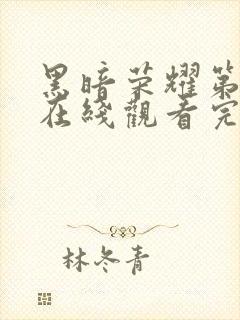 黑暗荣耀第
在线觀看完
林冬青